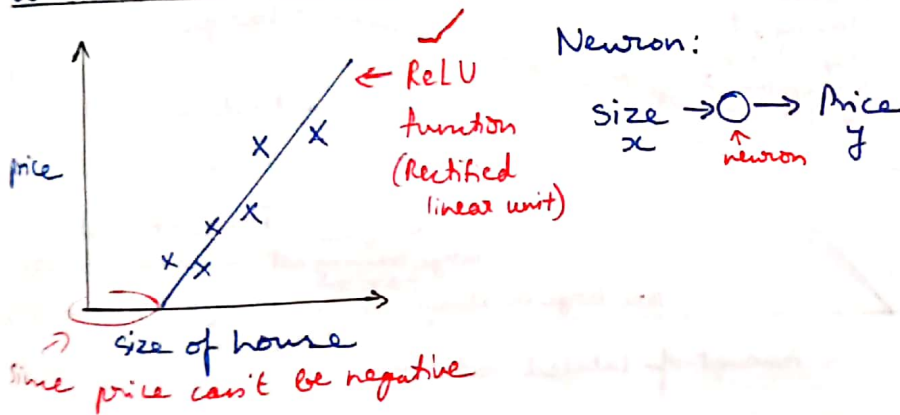 price
← ReLU
function
(Rectified
linear unit)
size of house
since price can't be negative
Neuron:
size → ○ → Price
x y
↑
neuron